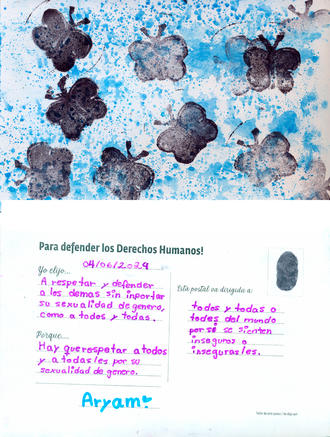 Para defender los Derechos Humanos!
Yo elijo...
04/06/2024
A respetar y defender
a los demas sin inportar
su sexualidad de genero,
como a todos y todas.
Porque...
Hay que respetar a todos
y a todas/es por su
sexualidad de genero.
Aryam
Esta postal va dirigida a:
todos y todas o
todes del mundo
por si se sienten
inseguros o
inseguras/es.